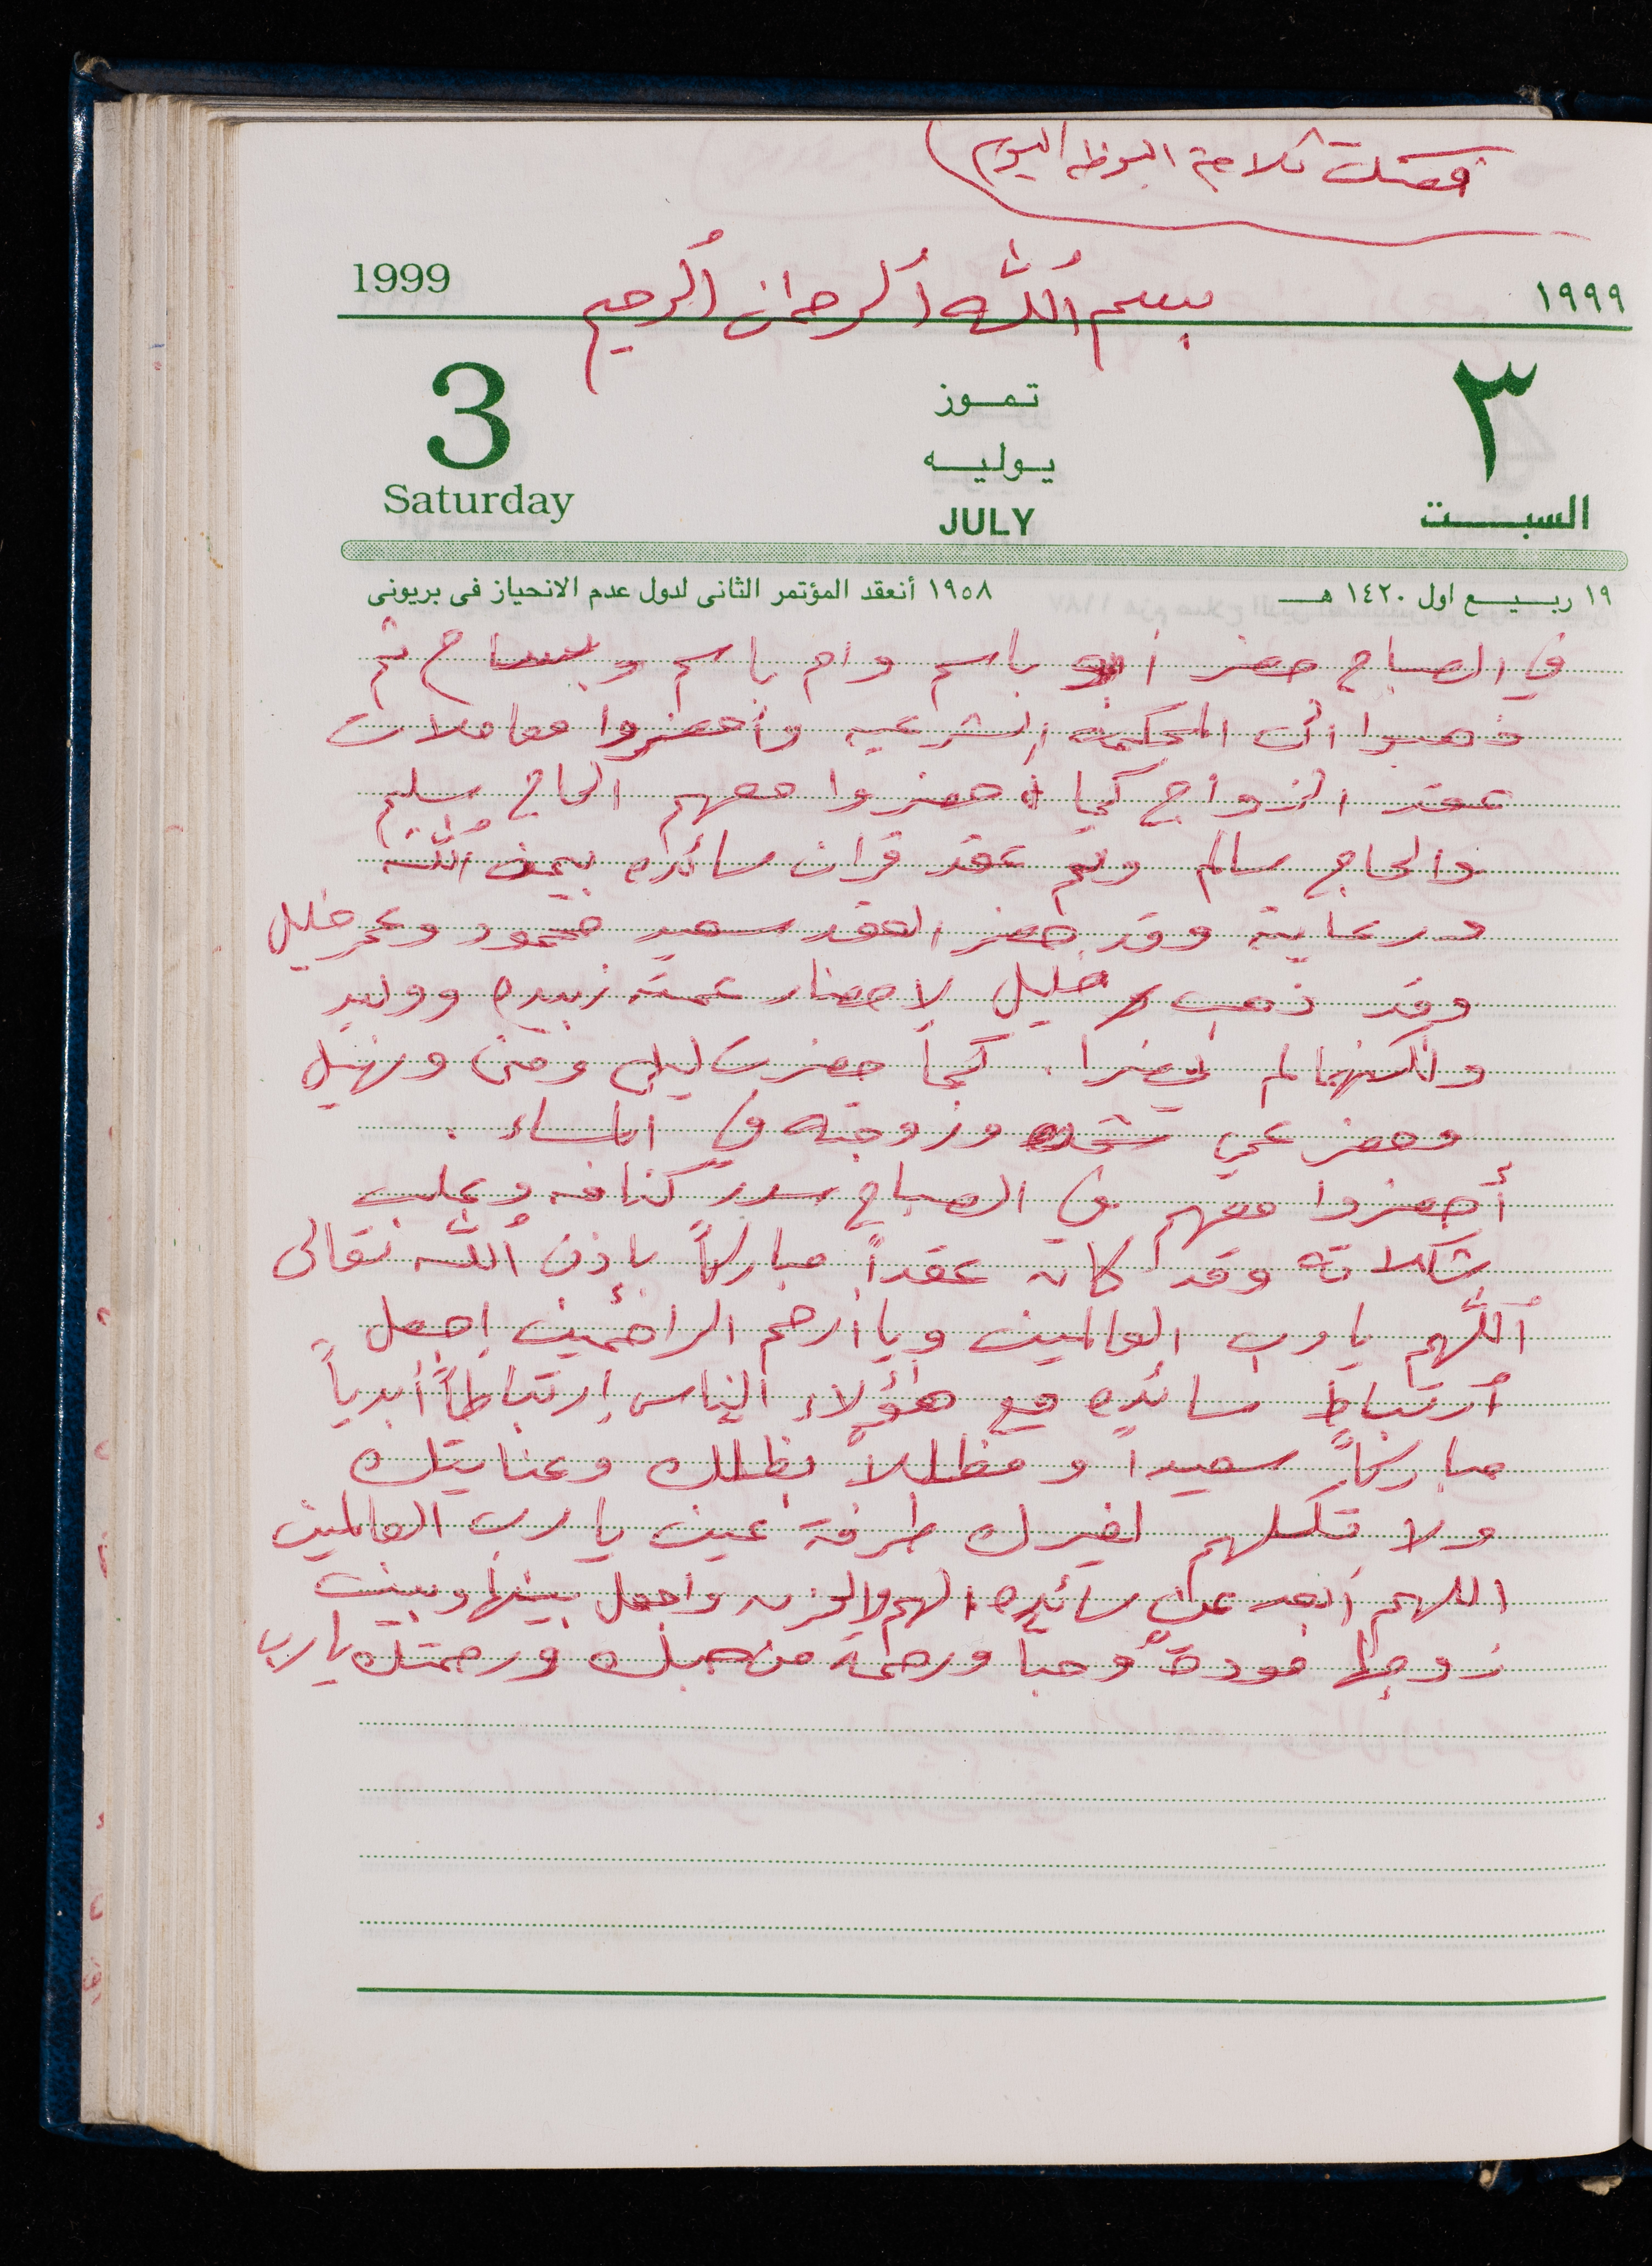 فصلت ثلاجة البوظه اليوم)
1999 ١٩٩٩
بسم الله الرحمان الرحيم
3 تموز ٣
يوليه
Saturday JULY السبت
١٩ ربيع اول ١٤٢٠ هـ ١٩٥٨ أنعقد المؤتمر الثانى لدول عدم الانحياز فى بريونى
في الصباح حضر أبو باسم وام باسم وبسام ثم
ذهبوا الى المحكمة الشرعيه وأحضروا معاملات
عقد الزواج كما أحضروا معهم الحاج سليم
والحاج سالم وتم عقد قران سائده بيمن الله
ورعايته وقد حضر العقد سعيد محمود وعمر خليل
وقد ذهب خليل لاحضار عمته زبيده ووليد
ولكنهما لم يحضرا. كما حضرت ليلى ومنى ونهيل
وحضر عمي شحده وزوجته في المساء.
أحضروا معهم في الصباح سدر كنافه وعلب
شكلاته وقد كان عقداً مباركاً بإذن الله تعالى
اللهم يا رب العالمين ويا أرحم الراحمين إجعل
أرتباط سائده مع هؤلاء الناس إرتباطاً أبدياً
مباركاً سعيداً ومظللاً بظلك وعنايتك
ولا تكلهم لغيرك طرفة عين يا رب العالمين
اللهم أبعد عن سائده الهم والحزن واجعل بينها وبين
زوجها مودة وحباً ورحمة من حبك ورحمتك يا رب